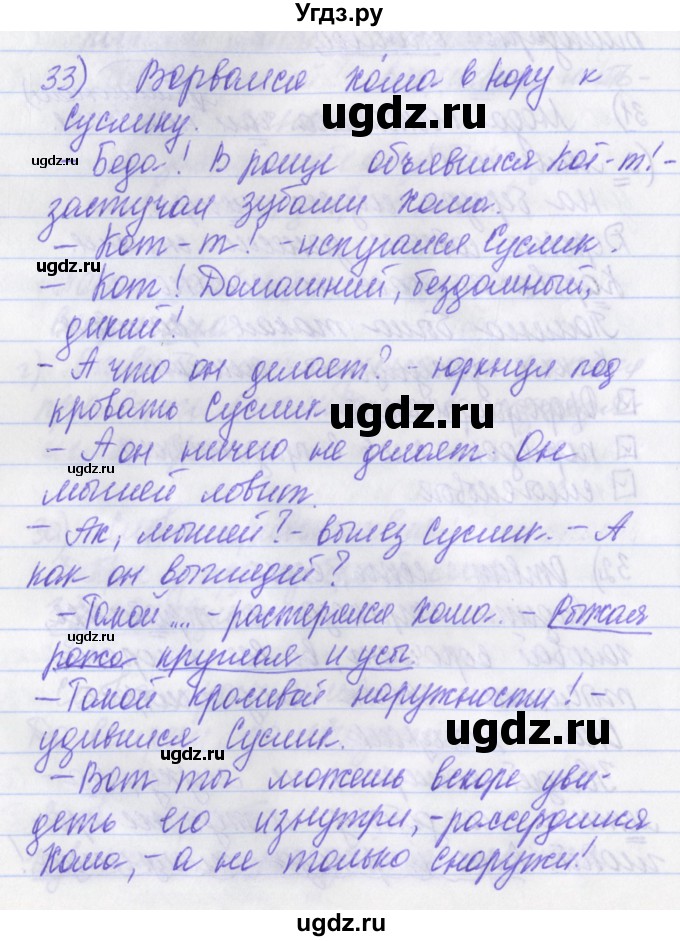 Угдз.ру
33) Ворвался Хома в нору к
Суслику.
ugdz.ru
ugdz.ru
- Беда! В роще объявился Кот-т! -
застучал зубами Хома.
- Кот-т! - испугался Суслик.
ugdz.ru
- Кот! Домашний, бездомный,
дикий!
- А что он делает? - юркнул под
кровать Суслик
ugdz.ru
- А он ничего не делает. Он
ugdz.ru
мышей ловит.
- Ах, мышей? - вылез Суслик. - А
как он выглядит?
- Такой .... - растерялся Хома. - Рыжая
ugdz.ru
рожа круглая и усы.
- Такой красивой наружности! -
ugdz.ru
удивился Суслик.
ugdz.ru
- Вот ты можешь вскоре уви-
деть его изнутри, - рассердился
Хома, - а не только снаружи!
ugdz.ru
ugdz.ru